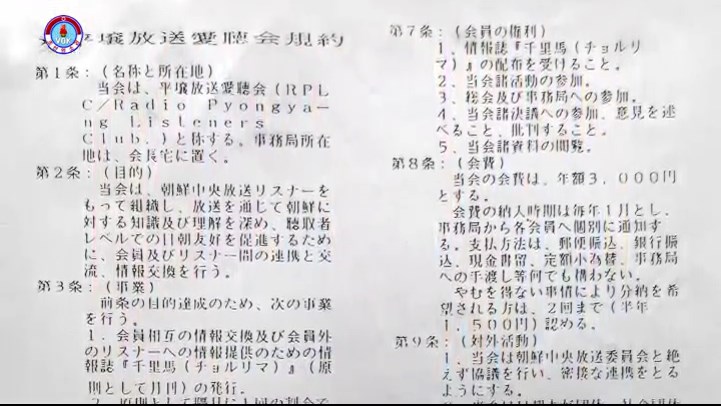 壌放送愛聴会規約
第1条：（名称と所在地）
当会は、平壌放送愛聴会（RPL
C／Radio Pyongya－
ng Listeners
Club．）と称する。事務局所在
地は、会長宅に置く。
第2条：（目的）
当会は、朝鮮中央放送リスナーを
もって組織し、放送を通じて朝鮮に
対する知識及び理解を深め、聴取者
レベルでの日朝友好を促進するため
に、会員及びリスナー間の連携と交
流、情報交換を行う。
第3条：（事業）
前条の目的達成のため、次の事業
を行う。
1．会員相互の情報交換及び会員外
のリスナーへの情報提供のための情
報誌『千里馬（チョルリマ）』（原
則として月刊）の発行。
第7条：（会員の権利）
1．情報誌『千里馬（チョルリ
マ）』の配布を受けること。
2．当会諸活動の参加。
3．総会及び事務局への参加。
4．当会諸決議への参加、意見を述
べること、批判すること。
5．当会諸資料の閲覧。
第8条：（会費）
当会の会費は、年額3，000円
とする。
会費の納入時期は毎年1月とし、
事務局から各会員へ個別に通知す
る。支払方法は、郵便振込、銀行振
込、現金書留、定額小為替、事務局
への手渡し等何でも構わない。
やむを得ない事情により分納を希
望される方は、2回まで（半年
1，500円）認める。
第9条：（対外活動）
1．当会は朝鮮中央放送委員会と絶
えず協議を行い、密接な連携をとる
ようにする。